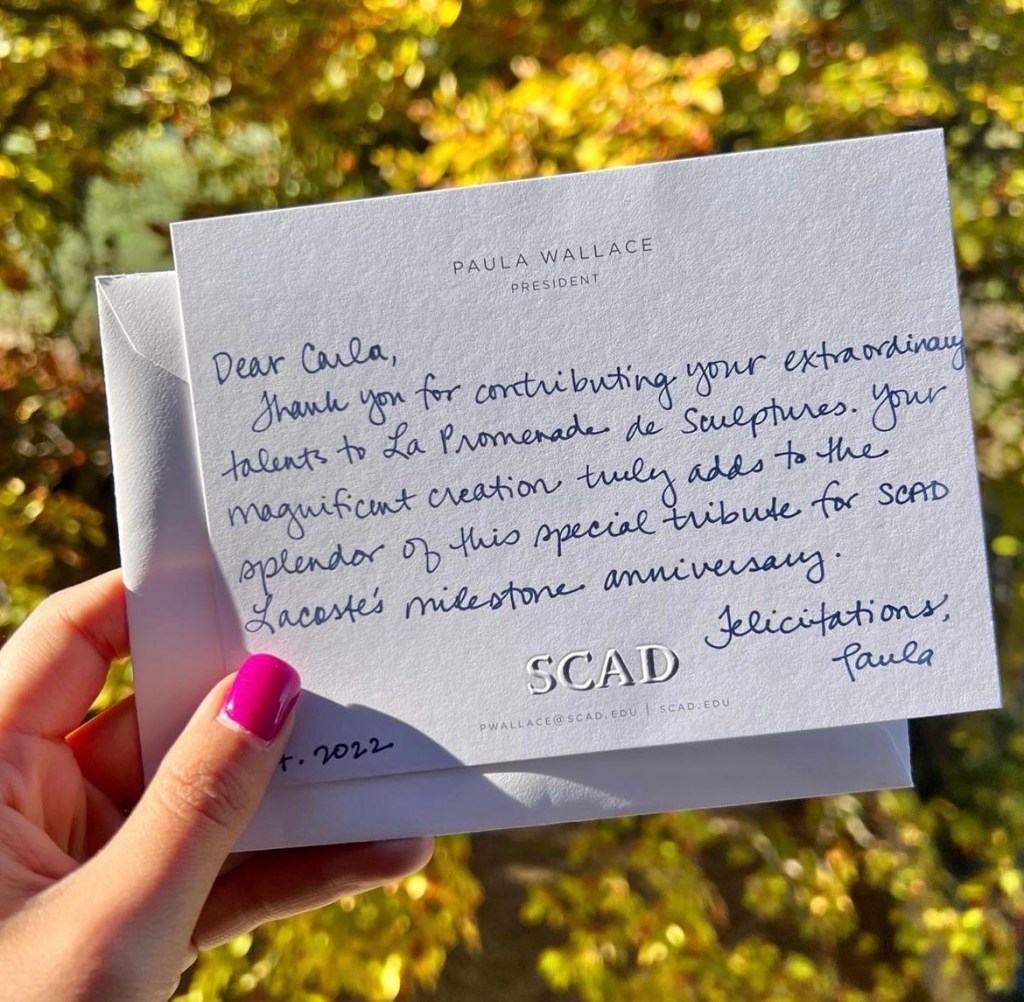 PAULA WALLACE
PRESIDENT
Dear Carla,
Thank you for contributing your extraordinary
talents to La Promenade de Sculptures. Your
magnificent creation truly adds to the
splendor of this special tribute for SCAD
Lacoste's milestone anniversary.
Felicitations,
Paula
SCAD
PWALLACE@SCAD.EDU | SCAD.EDU
. 2022